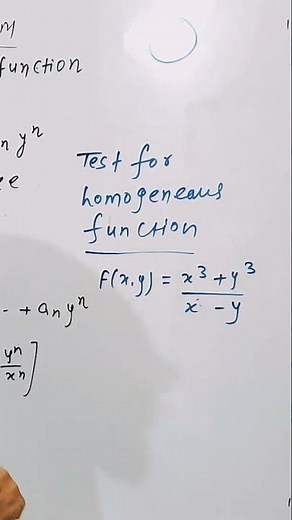 function
n yⁿ
Test for
homogeneous
function
F(x,y) = x³+y³
x - y
-- + aₙyⁿ
yⁿ
xⁿ ]